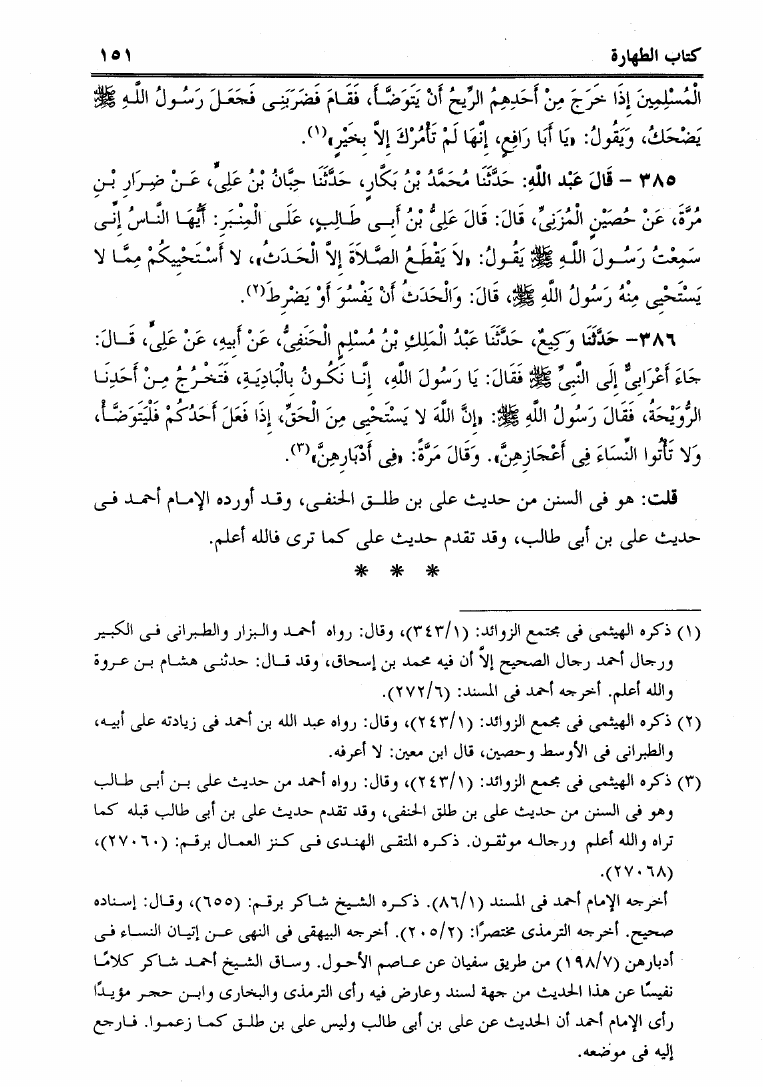 كتاب الطهارة ١٥١
الْمُسْلِمِينَ إِذَا خَرَجَ مِنْ أَحَدِهِمُ الرِّيحُ أَنْ يَتَوَضَّأَ، فَقَامَ فَضَرَبَنِى فَجَعَلَ رَسُولُ اللَّهِ ﷺ
يَضْحَكُ، وَيَقُولُ: «يَا أَبَا رَافِعٍ، إِنَّهَا لَمْ تَأْمُرْكَ إِلاَّ بِخَيْرٍ»(١).
٣٨٥ – قَالَ عَبْد اللَّهِ: حَدَّثَنَا مُحَمَّدُ بْنُ بَكَّارٍ، حَدَّثَنَا حِبَّانُ بْنُ عَلِىٍّ، عَنْ ضِرَارِ بْنِ
مُرَّةَ، عَنْ حُصَيْنٍ الْمُزَنِىِّ، قَالَ: قَالَ عَلِىُّ بْنُ أَبِى طَالِبٍ، عَلَى الْمِنْبَرِ: أَيُّهَا النَّاسُ إِنِّى
سَمِعْتُ رَسُولَ اللَّهِ ﷺ يَقُولُ: «لاَ يَقْطَعُ الصَّلاَةَ إِلاَّ الْحَدَثُ»، لا أَسْتَحْيِيكُمْ مِمَّا لا
يَسْتَحْيِى مِنْهُ رَسُولُ اللَّهِ ﷺ، قَالَ: وَالْحَدَثُ أَنْ يَفْسُوَ أَوْ يَضْرِطَ(٢).
٣٨٦ – حَدَّثَنَا وَكِيعٌ، حَدَّثَنَا عَبْدُ الْمَلِكِ بْنُ مُسْلِمٍ الْحَنَفِىُّ، عَنْ أَبِيهِ، عَنْ عَلِىٍّ، قَالَ:
جَاءَ أَعْرَابِىٌّ إِلَى النَّبِىِّ ﷺ فَقَالَ: يَا رَسُولَ اللَّهِ، إِنَّا نَكُونُ بِالْبَادِيَةِ، فَتَخْرُجُ مِنْ أَحَدِنَا
الرُّوَيْحَةُ، فَقَالَ رَسُولُ اللَّهِ ﷺ: «إِنَّ اللَّهَ لا يَسْتَحْيِى مِنَ الْحَقِّ، إِذَا فَعَلَ أَحَدُكُمْ فَلْيَتَوَضَّأْ،
وَلا تَأْتُوا النِّسَاءَ فِى أَعْجَازِهِنَّ». وَقَالَ مَرَّةً: «فِى أَدْبَارِهِنَّ»(٣).
قلت: هو فى السنن من حديث على بن طلق الحنفى، وقد أورده الإمام أحمد فى
حديث على بن أبى طالب، وقد تقدم حديث على كما ترى فالله أعلم.
* * *
(١) ذكره الهيثمى فى مجتمع الزوائد: (٣٤٣/١)، وقال: رواه أحمد والبزار والطبرانى فى الكبير
ورجال أحمد رجال الصحيح إلاَّ أن فيه محمد بن إسحاق، وقد قال: حدثنى هشام بن عروة
والله أعلم. أخرجه أحمد فى المسند: (٢٧٢/٦).
(٢) ذكره الهيثمى فى مجمع الزوائد: (٢٤٣/١)، وقال: رواه عبد الله بن أحمد فى زيادته على أبيه،
والطبرانى فى الأوسط وحصين، قال ابن معين: لا أعرفه.
(٣) ذكره الهيثمى فى مجمع الزوائد: (٢٤٣/١)، وقال: رواه أحمد من حديث على بن أبى طالب
وهو فى السنن من حديث على بن طلق الحنفى، وقد تقدم حديث على بن أبى طالب قبله كما
تراه والله أعلم ورجاله موثقون. ذكره المتقى الهندى فى كنز العمال برقم: (٢٧٠٦٠)،
(٢٧٠٦٨).
أخرجه الإمام أحمد فى المسند (٨٦/١). ذكره الشيخ شاكر برقم: (٦٥٥)، وقال: إسناده
صحيح. أخرجه الترمذى مختصرًا: (٢٠٥/٢). أخرجه البيهقى فى النهى عن إتيان النساء فى
أدبارهن (١٩٨/٧) من طريق سفيان عن عاصم الأحول. وساق الشيخ أحمد شاكر كلامًا
نفيسًا عن هذا الحديث من جهة لسند وعارض فيه رأى الترمذى والبخارى وابن حجر مؤيدًا
رأى الإمام أحمد أن الحديث عن على بن أبى طالب وليس على بن طلق كما زعموا. فارجع
إليه فى موضعه.